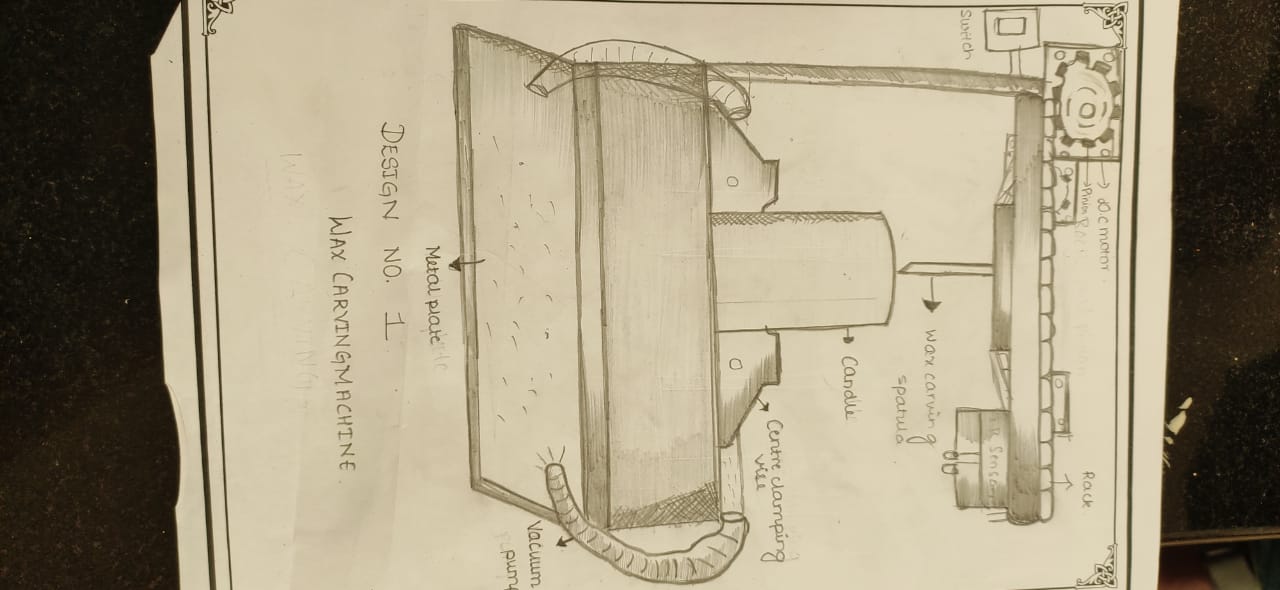 Switch
D.C motor
Pinion
Rack
IR Sensor
wax carving
spatula
Candle
Centre clamping
vise
Vacuum
pump
Metal plate
DESIGN NO. 1
WAX CARVING MACHINE